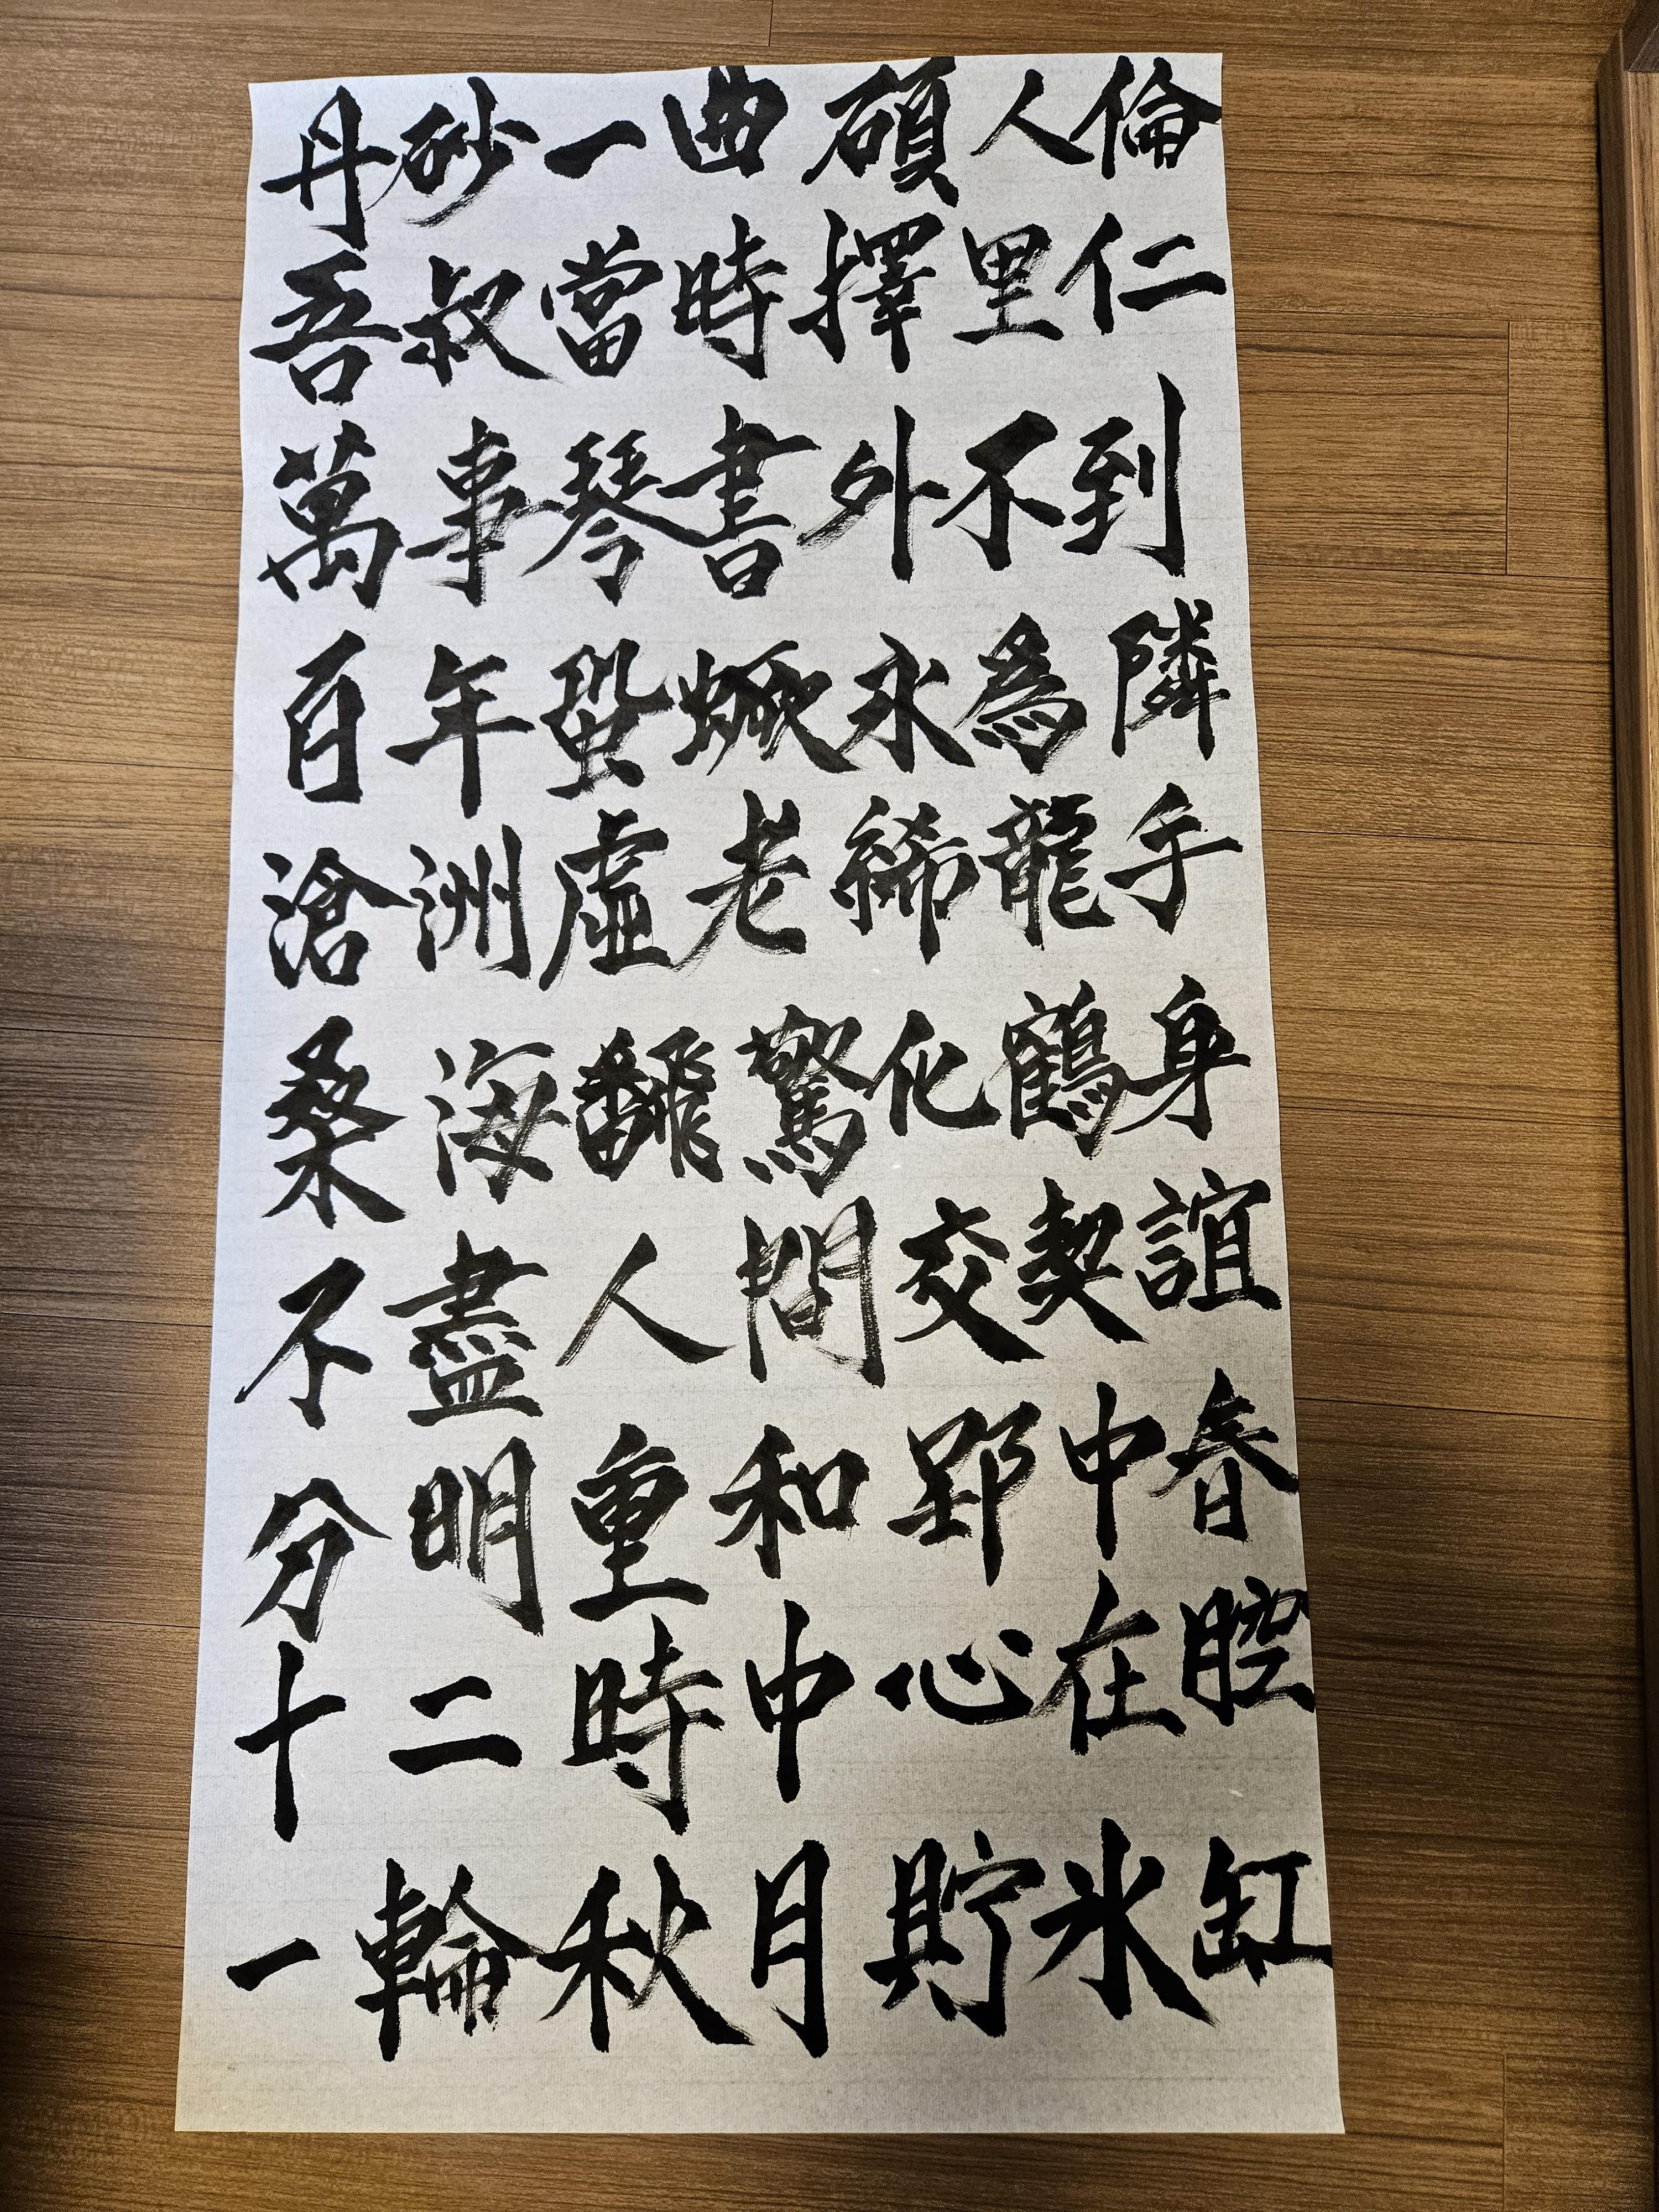 丹砂一曲碩人倫
吾叔當時擇里仁
萬事琴書外不到
百年蛩蟨永爲隣
滄洲虛老絺龍手
桑海飜驚化鶴身
不盡人間交契誼
分明重和郢中春
十二時中心在腔
一輪秋月貯氷缸